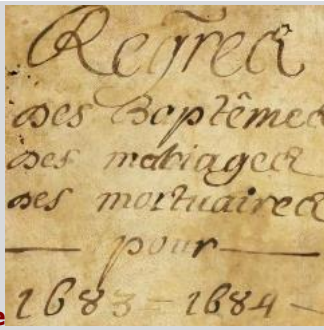 Regrect
des Baptêmes
des mariages
des mortuaires
pour
1683 - 1684 -
e